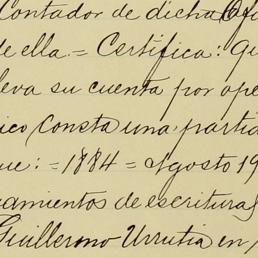 Contador de dicha Ofi
de ella.= Certifica: Qu
leva su cuenta por ope
ico consta una partid
ue: =1884= Agosto 19
amientos de escrituras
Guillermo Urrutia en